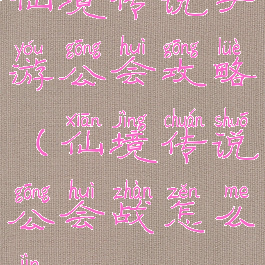 仙境传说手
yóu gōng huì gōng lüè
游公会攻略
xiān jìng chuán shuō
(仙境传说
gōng huì zhàn zěn me
公会战怎么